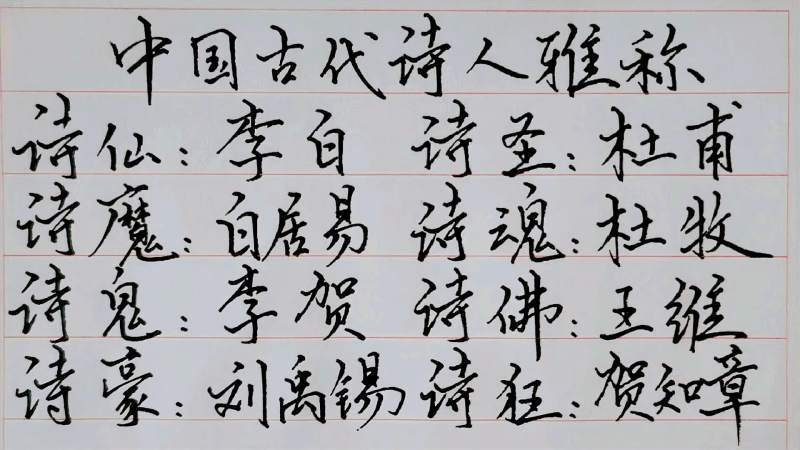 中国古代诗人雅称
诗仙：李白 诗圣：杜甫
诗魔：白居易 诗魂：杜牧
诗鬼：李贺 诗佛：王维
诗豪：刘禹锡 诗狂：贺知章